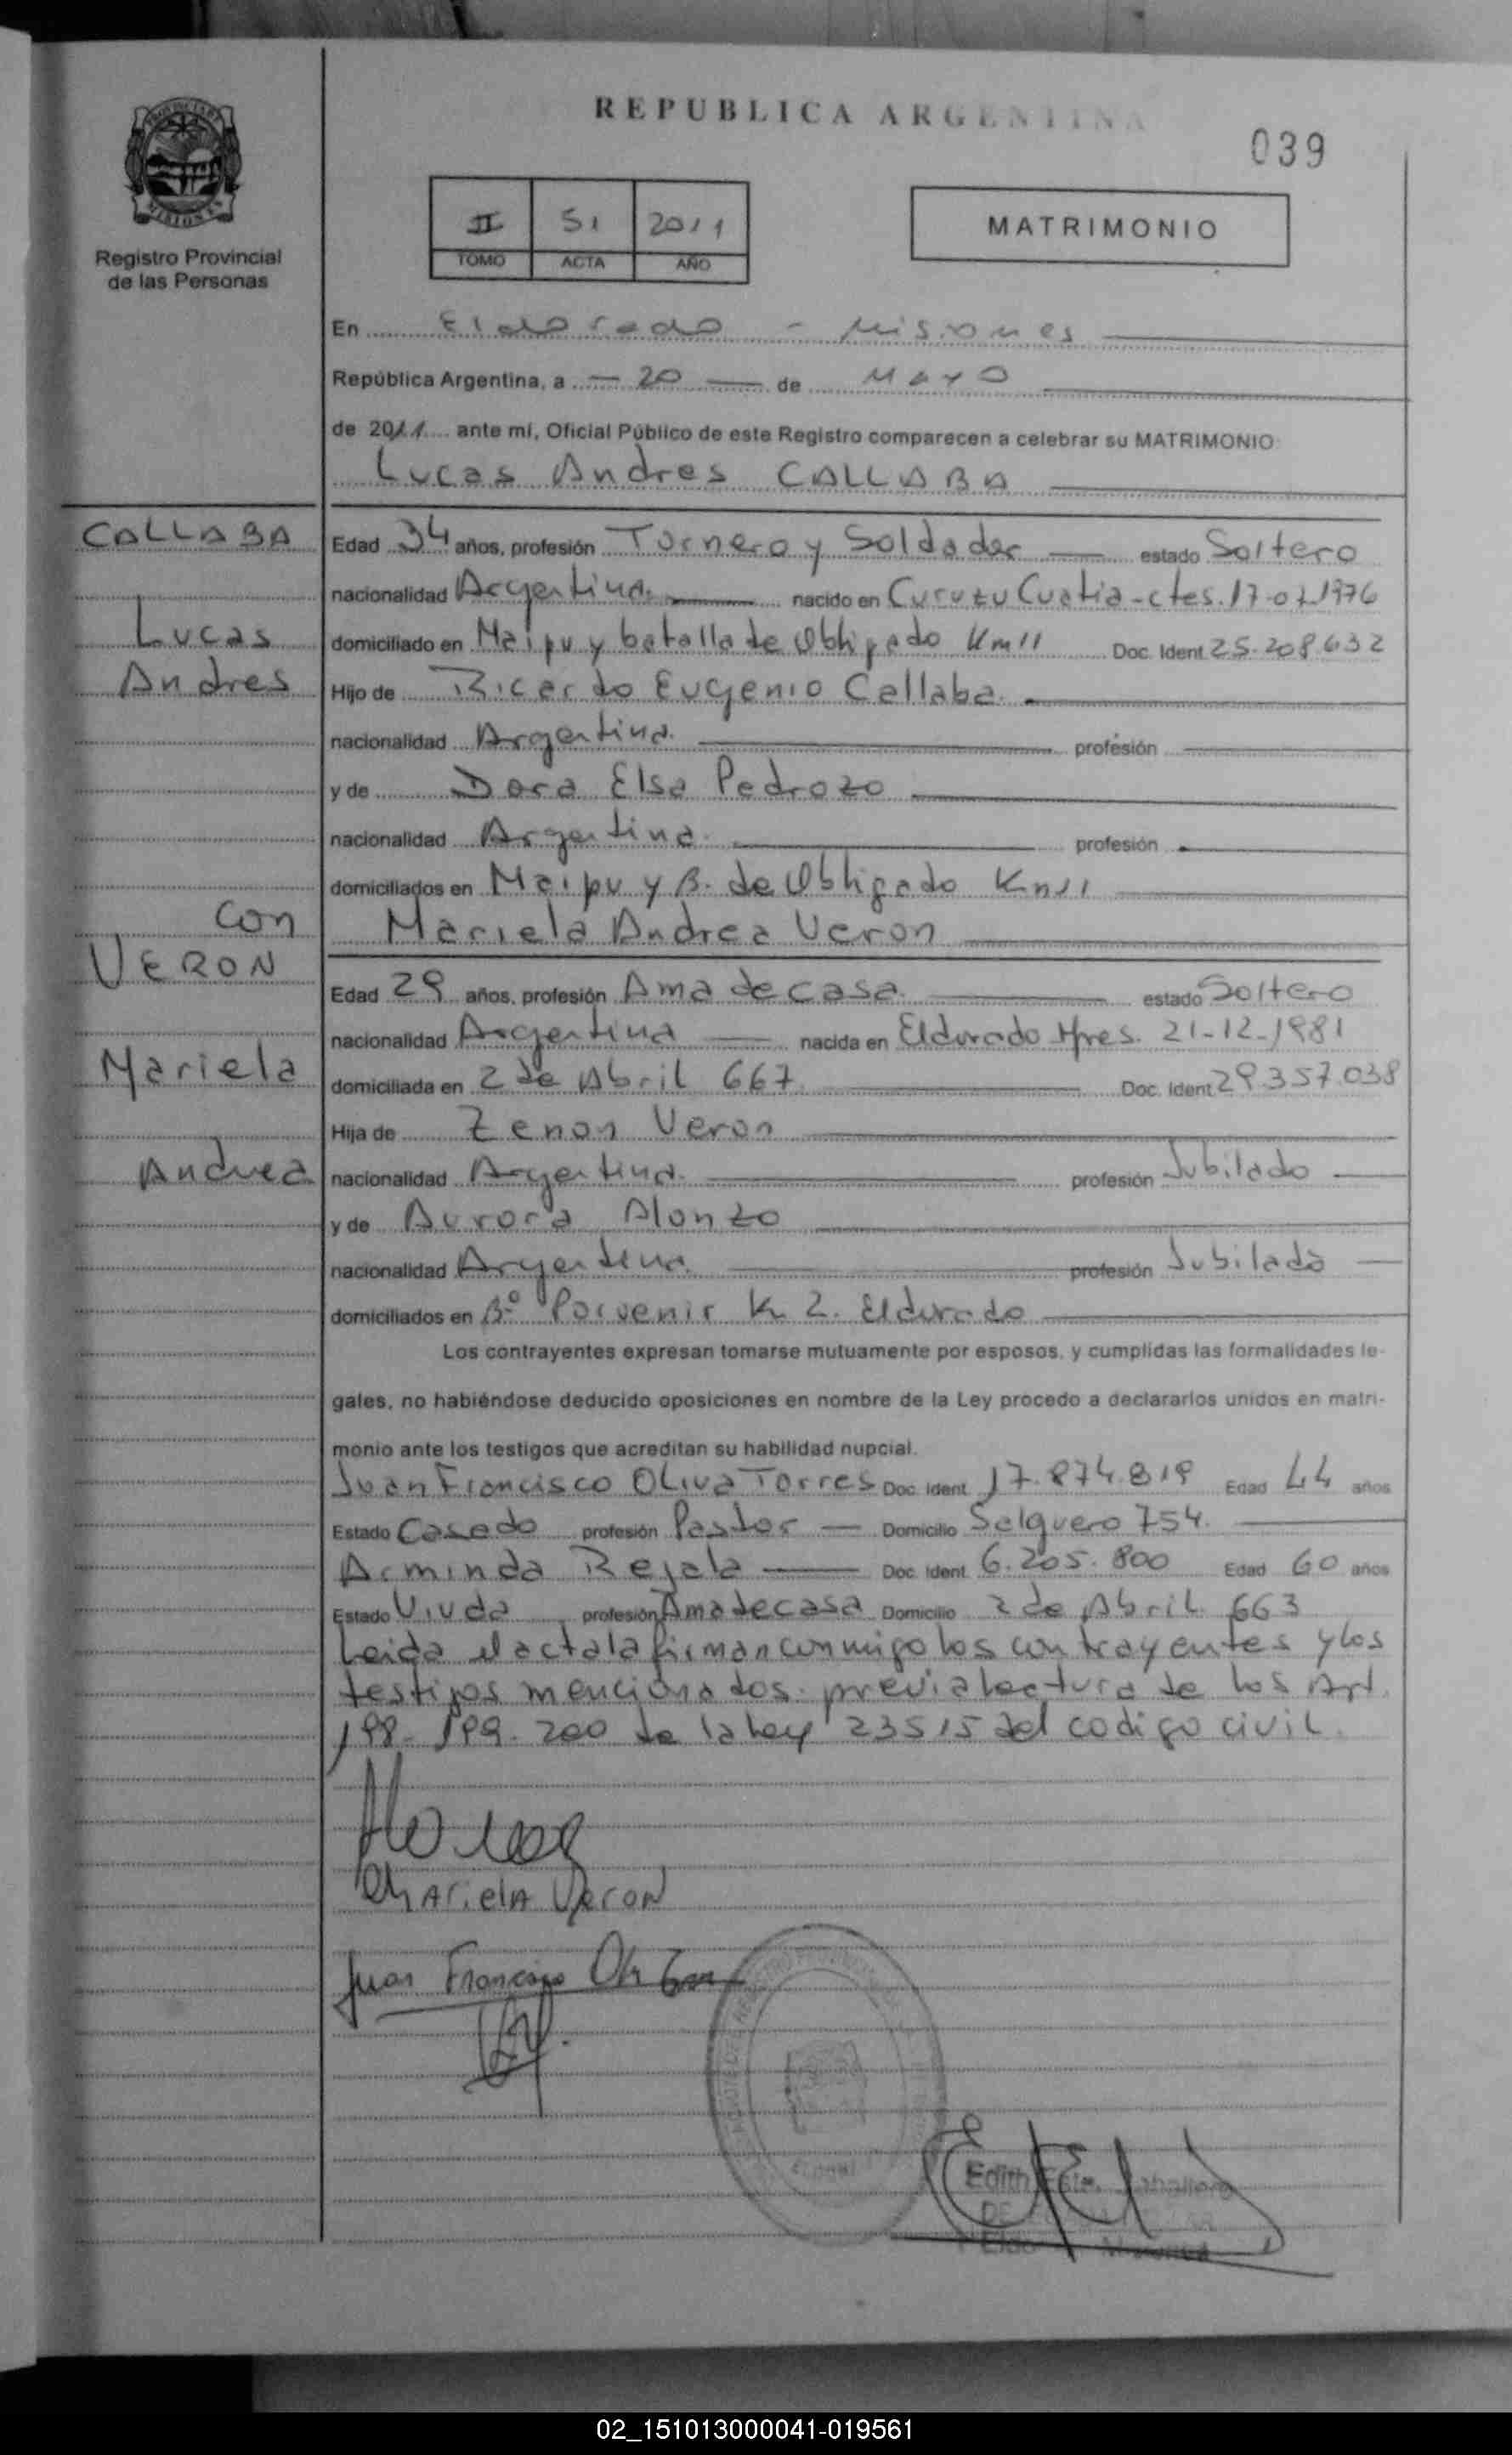 REPUBLICA ARGENTINA
039
PROVINCIA DE
MISIONES
Registro Provincial
de las Personas
II 51 2011
TOMO ACTA AÑO
MATRIMONIO
En Eldorado - Misiones
República Argentina, a 20 de Mayo
de 2011 ante mí, Oficial Público de este Registro comparecen a celebrar su MATRIMONIO
Lucas Andres CALLABA
CALLABA
Edad 34 años, profesión Tornero y Soldador estado Soltero
nacionalidad Argentina. nacido en Curuzu Cuatia - ctes. 17-07-1976
Lucas
domiciliado en Maipu y batalla de Obligado Km 11 Doc. Ident. 25.208.632
Andres
Hijo de Ricardo Eugenio Callaba.
nacionalidad Argentina. profesión
y de Dora Elsa Pedrozo
nacionalidad Argentina. profesión
domiciliados en Maipu y B. de Obligado Km 11
con
Mariela Andrea Veron
VERON
Edad 29 años, profesión Ama de casa. estado Soltero
nacionalidad Argentina nacida en Eldorado Mnes. 21-12-1981
Mariela
domiciliada en 2 de Abril 667. Doc. Ident 29.357.038
Hija de Zenon Veron
Andrea
nacionalidad Argentina. profesión Jubilado
y de Aurora Alonzo
nacionalidad Argentina. profesión Jubilada
domiciliados en Bº Porvenir K 2. Eldorado
Los contrayentes expresan tomarse mutuamente por esposos, y cumplidas las formalidades le-
gales, no habiéndose deducido oposiciones en nombre de la Ley procedo a declararlos unidos en matri-
monio ante los testigos que acreditan su habilidad nupcial.
Juan Francisco Oliva Torres Doc. Ident. 17.874.819 Edad 44 años
Estado Casado profesión Pastor Domicilio Salguero 754.
Arminda Rejala Doc. Ident. 6.205.800 Edad 60 años
Estado Viuda profesión Ama de casa Domicilio 2 de Abril 663
Leida el acta la firman conmigo los contrayentes y los
testigos mencionados. previa lectura de los Art.
198- 199- 200 de la ley 23515 del codigo civil.
Mariela Veron
Juan Francisco
Edith
02_151013000041-019561